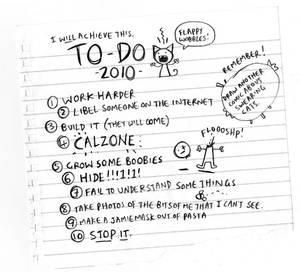 I WILL ACHIEVE THIS.
FLAPPY
WOBBLES!
TO-DO
-2010-
REMEMBER!
DRAW ANOTHER
COMIC ABOUT
SWEARING
CATS.
① WORK HARDER
② LIBEL SOMEONE ON THE INTERNET
③ BUILD IT (THEY WILL COME)
④ CALZONE.
FLOOOSHP!
⑤ GROW SOME BOOBIES
⑥ HIDE!!!1!1!
⑦ FAIL TO UNDERSTAND SOME THINGS
⑧ TAKE PHOTOS OF THE BITS OF ME THAT I CAN'T SEE.
⑨ MAKE A JAMIE MASK OUT OF PASTA
⑩ STOP IT.